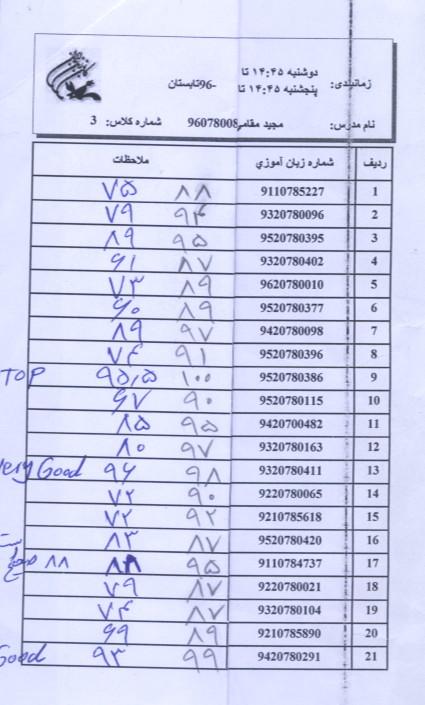 زمانبندی: دوشنبه ۱۴:۴۵ تا
پنجشنبه ۱۴:۴۵ تا
-96تابستان
نام مدرس: مجید مقامی 96078008 شماره کلاس: 3
ردیف شماره زبان آموزي ملاحظات
1 9110785227 ۸۸ ۷۵
2 9320780096 ۹۴ ۷۹
3 9520780395 ۹۵ ۸۹
4 9320780402 ۸۷ ۶۱
5 9620780010 ۸۹ ۷۳
6 9520780377 ۸۹ ۶۰
7 9420780098 ۹۷ ۸۹
8 9520780396 ۹۱ ۷۴
9 9520780386 ۱۰۰ ۹۵٫۵ TOP
10 9520780115 ۹۰ ۶۷
11 9420700482 ۹۵ ۸۵
12 9320780163 ۹۷ ۸۰
13 9320780411 ۹۸ ۹۶ very Good
14 9220780065 ۹۰ ۷۲
15 9210785618 ۹۲ ۷۲
16 9520780420 ۸۷ ۸۳
17 9110784737 ۹۵ ۸۸ صحیح
18 9220780021 ۸۷ ۷۹
19 9320780104 ۸۷ ۷۴
20 9210785890 ۸۹ ۶۹
21 9420780291 ۹۹ ۹۳ Good